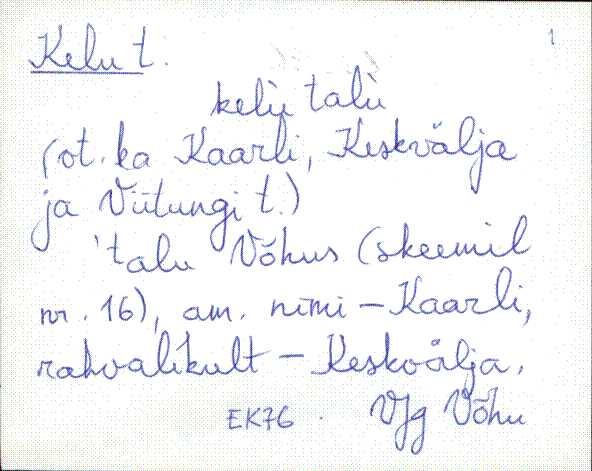 1
Kelu t.
kelù talù
(ot. ka Kaarli, Keskvälja
ja Viitungi t.)
'talu Võhus (skeemil
nr. 16), am. nimi – Kaarli,
rahvalikult – Keskvälja.
EK76. VJg Võhu